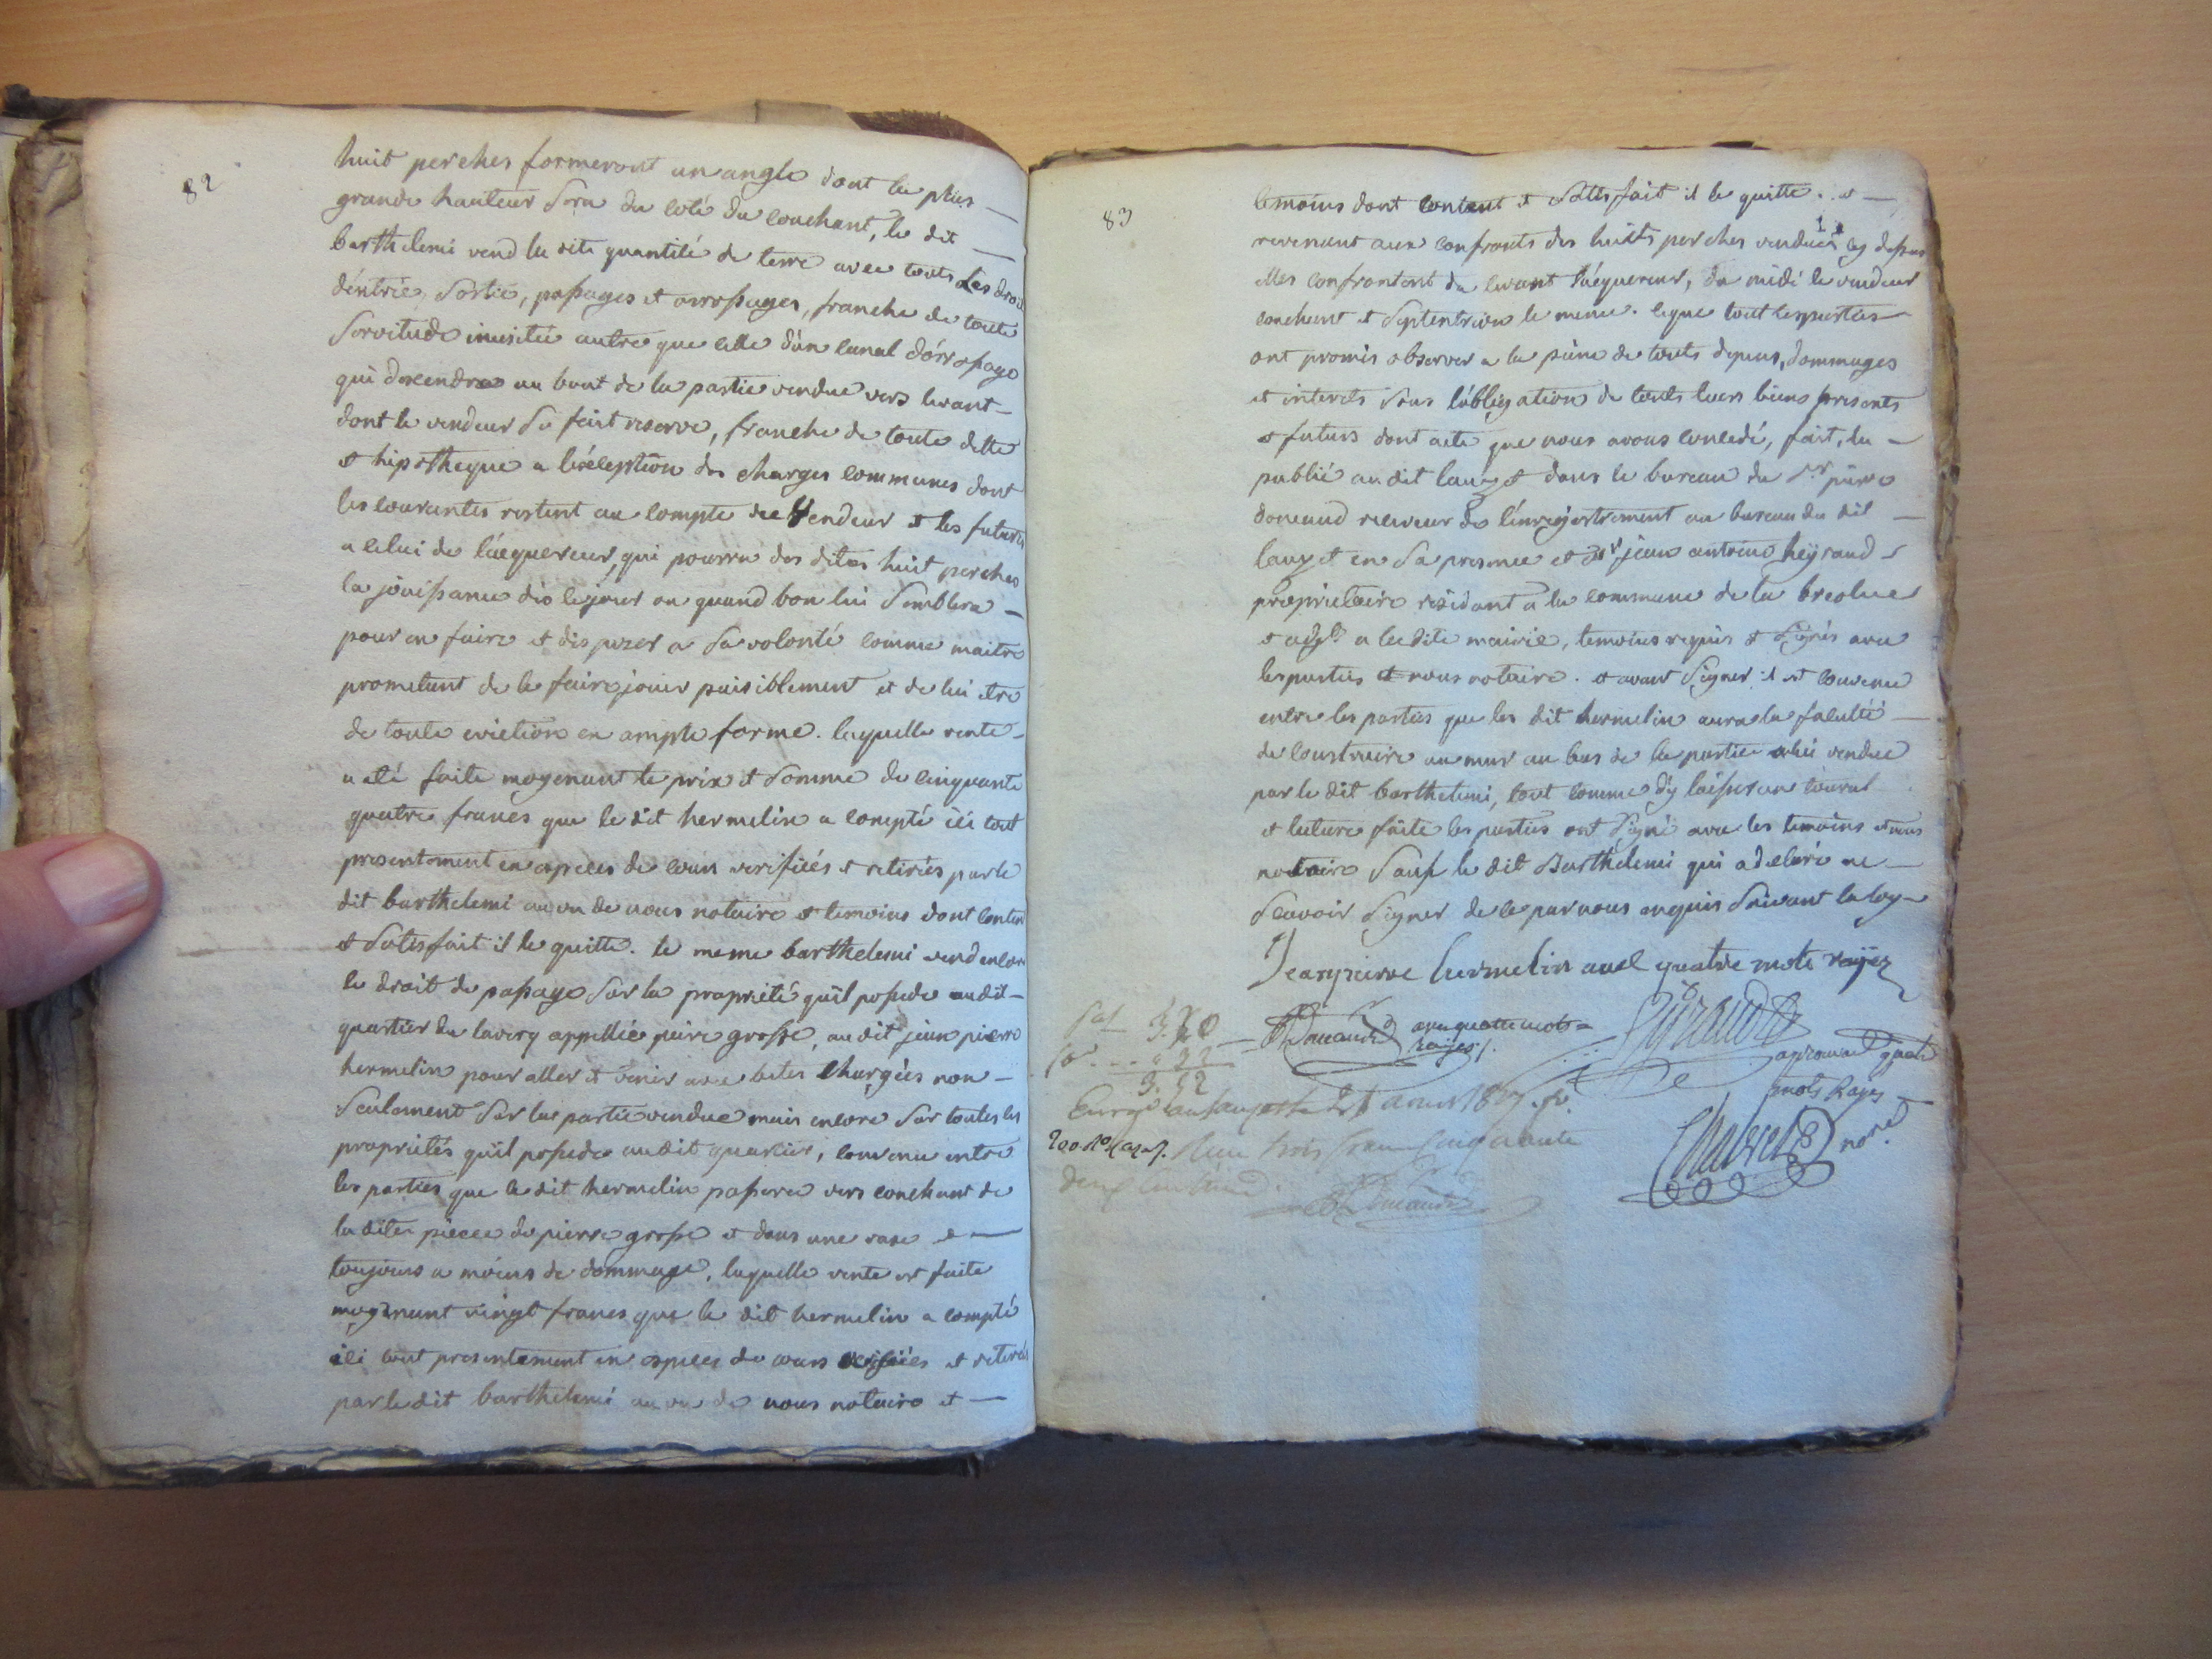 82
huit perches formeront un angle dont la plus
grande hauteur sera du coté du couchant, le dit
barthelemi vend la dite quantité de terre avec touts Les droits
d'entrée, sortie, passages et arrosages, franche de toute
servitude inusitée autre que celle d'un canal d'arrosage
qui descendra au bout de la partie vendue vers levant
dont le vendeur se fait reserve, franche de toute dette
et hipotheque a l'éxception des charges communes dont
les courantes restent au compte du Vendeur et les futures
a celui de l'acquereur, qui pourra des dites huit perches
la jouissance dès le jour ou quand bon lui semblera
pour en faire et disposer a sa volonté comme maitre
prometant de le faire jouir paisiblement et de lui etre
de toute eviction en ample forme. laquelle vente
a été faite moyenant le prix et somme de cinquante
quatre francs que le dit hermelin a compté ici tout
presentement en especes de cours verifiées et retirées par le
dit barthelemi au vu de nous notaire et temoins dont content
et satisfait il le quitte. le meme barthelemi vend encore
le droit de passage sur la propriété qu'il possede audit
quartier du lavery appellée pierre grosse, au dit jean pierre
hermelin pour aller et venir avec betes chargées non
seulement sur la partie vendue mais encore sur toutes les
propriétés qu'il possede audit quartier, convenu entre
les parties que le dit hermelin passera vers couchant de
la dite pièce de pierre grosse et dans une rase et
toujours a moins de dommage, laquelle vente est faite
moyenant vingt francs que le dit hermelin a compté
ici tout presentement en especes de cours verifiées et retirées
par le dit barthelemi au vu de nous notaire et
83
temoins dont content et satisfait il le quitte. et
revenant aux confronts des huits perches vendues cy dessus
elles confrontent du levant l'acquereur, du midi le vendeur
couchant et septentrion le meme. ce que tout les parties
ont promis observer a la peine de touts depens, dommages
et interets sous l'obligation de touts leurs biens presents
et futurs dont acte que nous avons concedé, fait, lu
publié au dit lauzet dans le bureau du sr pierre
doneaud receveur de l'enregistrement au bureau du dit
lauzet en sa presence et du sr jean antoine heyraud
proprietaire residant a la commune de la breole
et adjt a la dite mairie, temoins requis et signés avec
les parties et nous notaire. et avant signer il est convenu
entre les parties que les dit hermelin aura la faculté
de construire un mur au bas de la partie a lui vendue
par le dit barthelemi, tout comme d'y laisser un tournal
et lecture faite les parties ont signé avec les temoins et nous
notaire sauf le dit Barthelemi qui a declaré ne
scavoir signer de ce par nous enquis suivant la loy
Jeanpierre hermelin avec quatre mots rayez
Doneaud avec quatre mots
rayés
approuvant quatre
mots Rayés
nore
3. 20
" 32
3. 52
Enregé au lauzet le
200 Ro Case 7. Reçu trois francs cinquante
deux centimes.
Doneaud